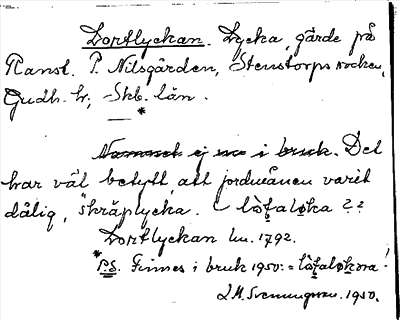 Lortlyckan. Lycka, gärde på
Ranst. P. Nilsgården, Stenstorps socken,
Gudh. hr, Skb. län.
*
Namnet ej i bruk. Det
har väl betytt, att jordmånen varit
dålig, "skräplycka. löfaløka ??
Lortlyckan lm. 1792.
*P.S. Finnes i bruk 1950: = löfaløkora!
J.M. Svenningson. 1950.